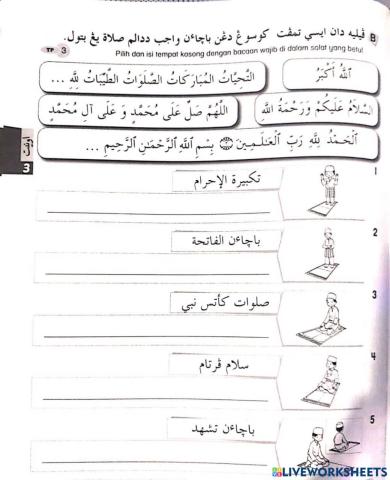 B ڤيليه دان ايسي تمڤت كوسوڠ دڠن باچاءن واجب ددالم صلاة يڠ بتول.
TP 3
Pilih dan isi tempat kosong dengan bacaan wajib di dalam solat yang betul
اَللهُ أَكْبَرُ
التَّحِيَّاتُ المُبَارَكَاتُ الصَّلَوَاتُ الطَّيِّبَاتُ لِلّٰهِ ...
السَّلَامُ عَلَيْكُمْ وَرَحْمَةُ اللهِ
اللَّهُمَّ صَلِّ عَلَى مُحَمَّدٍ وَ عَلَى آلِ مُحَمَّدٍ
بِسْمِ اللهِ الرَّحْمَٰنِ الرَّحِيمِ ۝ الْحَمْدُ لِلّٰهِ رَبِّ الْعَالَمِينَ ...
اونيت
3
1
تكبيرة الإحرام
2
باچاءن الفاتحة
3
صلوات كأتس نبي
4
سلام ڤرتام
5
باچاءن تشهد
LIVEWORKSHEETS